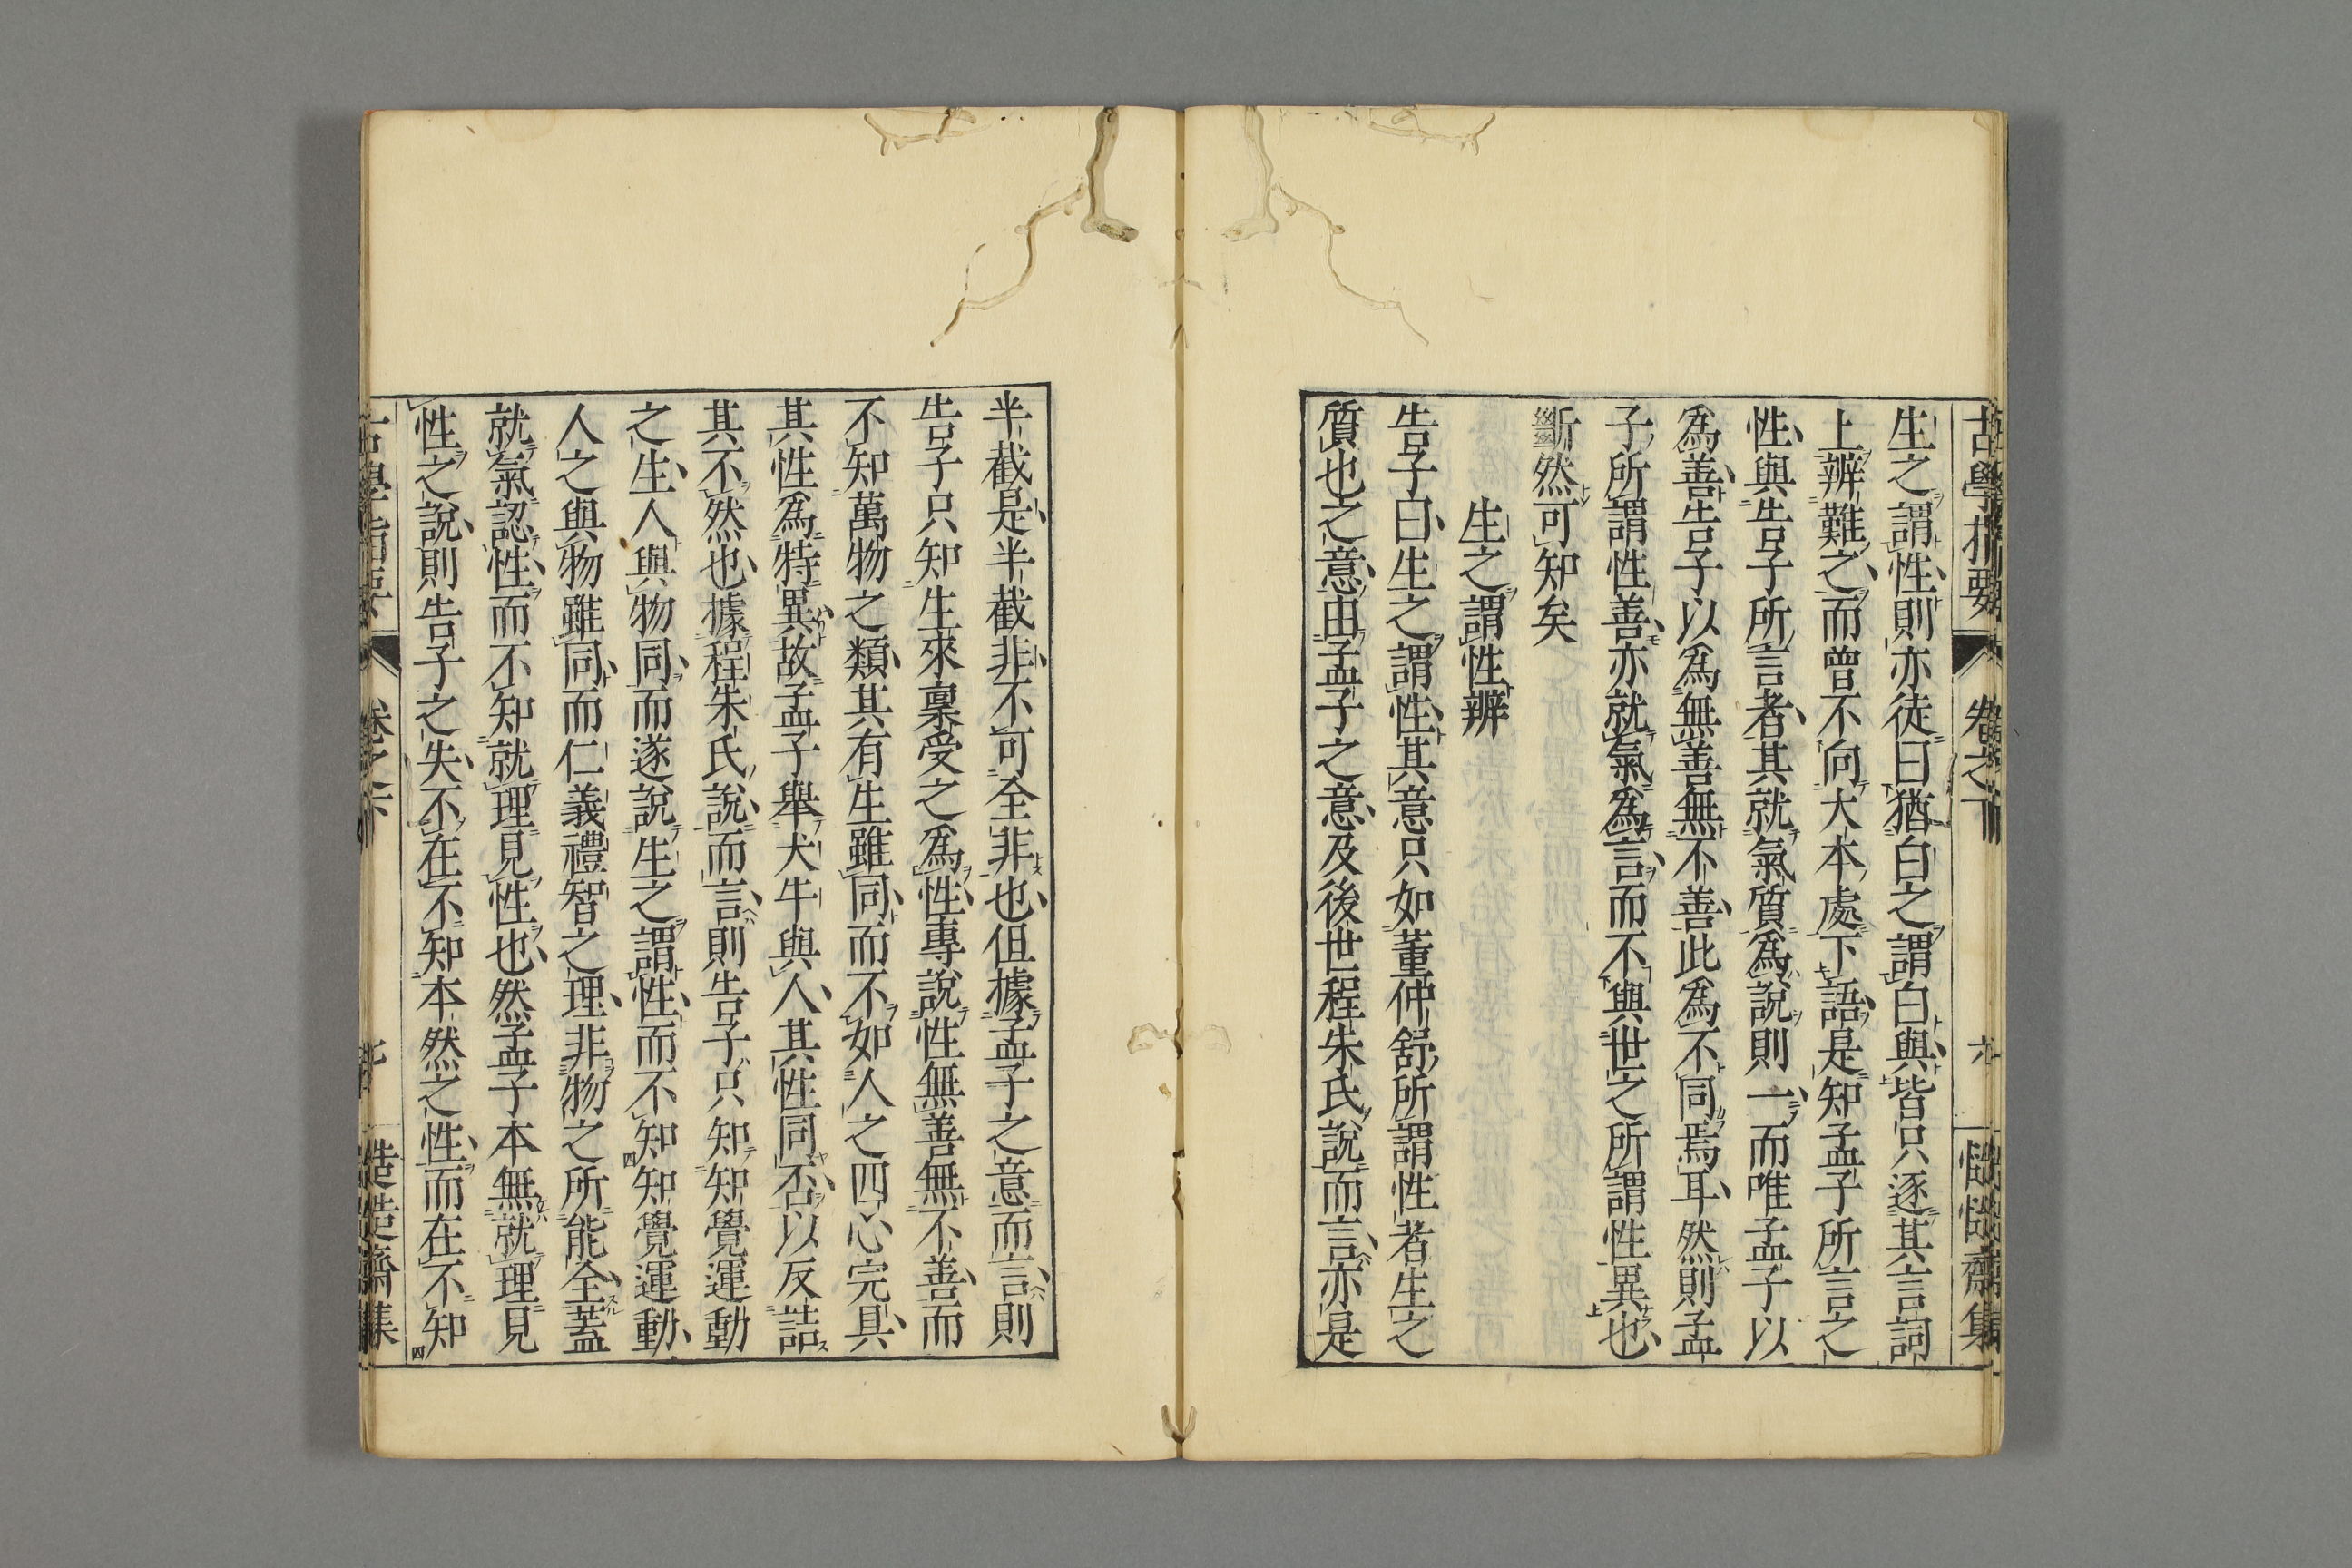 古學指要 卷之下 六 慥慥齋集
生之謂性則亦徒曰猶白之謂白與皆只逐其言詞
上辨難之而曾不向大本處下語是知孟子所言之
性與告子所言者其就氣質爲說則一而唯孟子以
爲善告子以爲無善無不善此爲不同焉耳然則孟
子所謂性善亦就氣爲言而不與世之所謂性異也
斷然可知矣
生之謂性辨
告子曰生之謂性其意只如董仲舒所謂性者生之
質也之意由孟子之意及後世程朱氏說而言亦是
半截是半截非不可全非也但據孟子之意而言則
告子只知生來稟受之爲性專說性無善無不善而
不知萬物之類其有生雖同而不如人之四心完具
其性爲特異故孟子舉犬牛與人其性同否以反詰
其不然也據程朱氏說而言則告子只知知覺運動
之生人與物同而遂說生之謂性而不知知覺運動
人之與物雖同而仁義禮智之理非物之所能全蓋
就氣認性而不知就理見性也然孟子本無就理見
性之說則告子之失不在不知本然之性而在不知
古學指要 卷之下 慥慥齋集